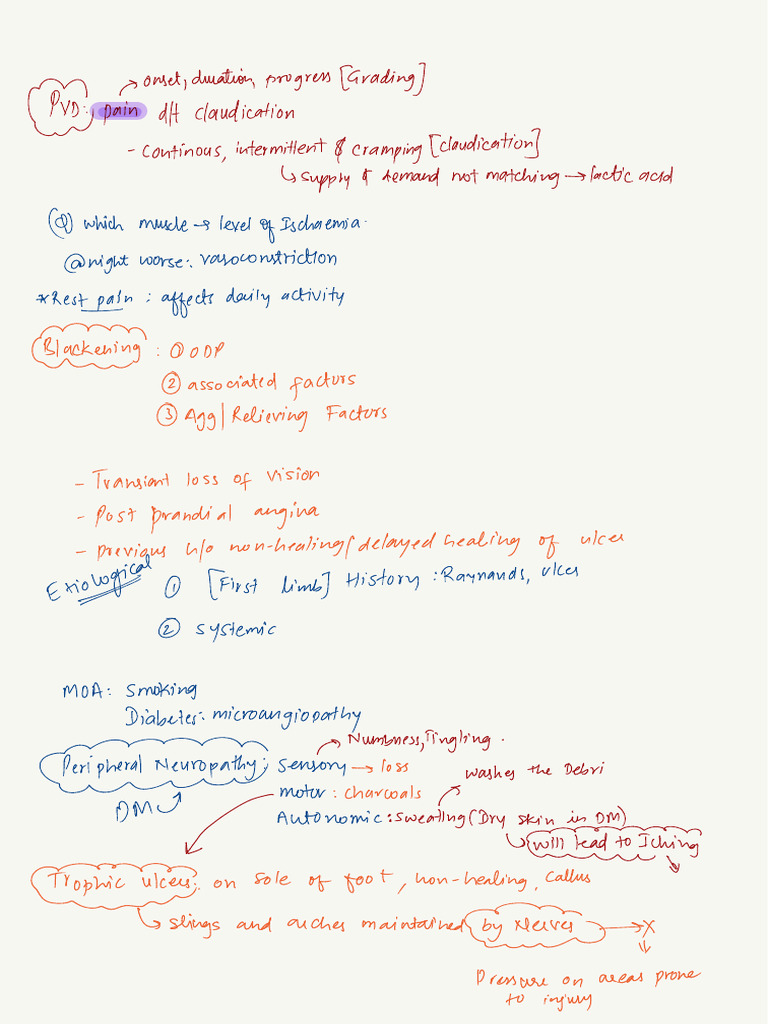 → onset, duration, progress [Grading]
PVD: pain d/t claudication
- continous, intermittent & cramping [claudication]
↳ supply & demand not matching → lactic acid
(Q) which muscle → level of Ischaemia.
@night worse: vasoconstriction
*Rest pain : affects daily activity
Blackening : ① ODP
② associated factors
③ Agg/Relieving Factors
- Transient loss of vision
- Post prandial angina
- previous h/o non-healing/delayed healing of ulcer
Etiological ① [First limb] History : Raynauds, ulcer
② systemic
MOA: Smoking
Diabetes: microangiopathy
Numbness, Tingling.
Peripheral Neuropathy: Sensory → loss
washes the Debri
DM motor : charcoals
Autonomic : sweating (Dry skin in DM)
↳ will lead to Iching
Trophic ulcers: on sole of foot, non-healing, callus
↳ slings and arches maintained by Nerves → X
Pressure on areas prone
to injury